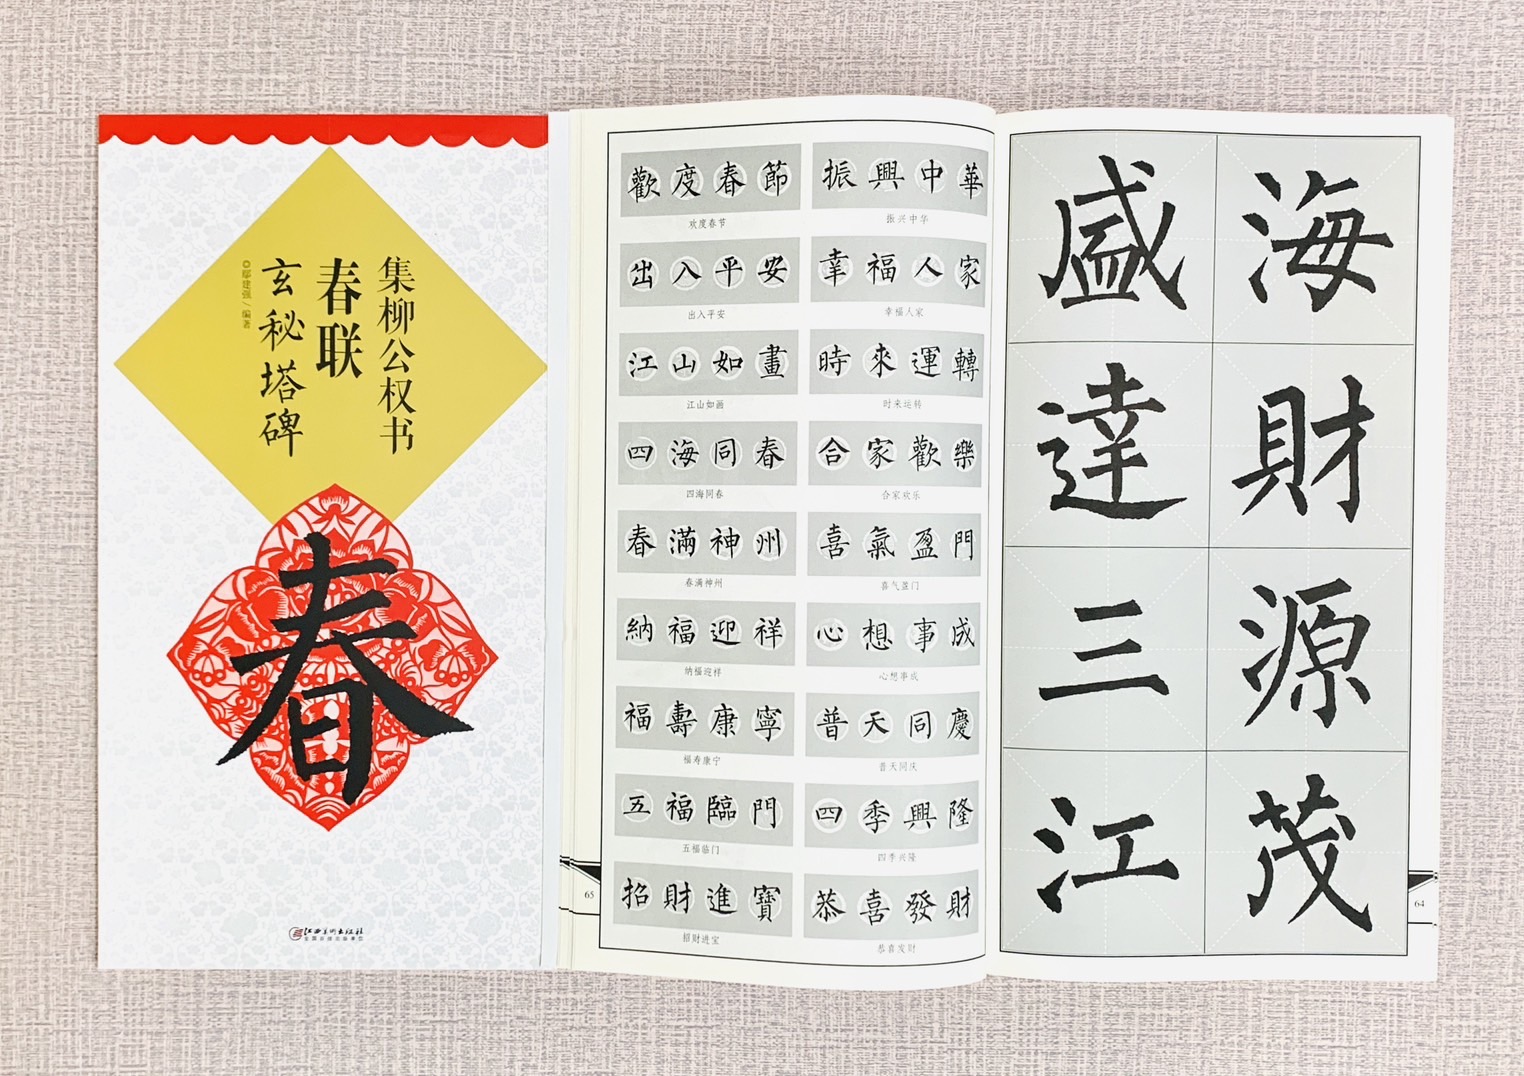 集柳公权书
春联
玄秘塔碑
◎鄢建强／编著
春
江西美术出版社
全国百佳出版单位
歡度春節
欢度春节
振興中華
振兴中华
出入平安
出入平安
幸福人家
幸福人家
江山如畫
江山如画
時來運轉
时来运转
四海同春
四海同春
合家歡樂
合家欢乐
春滿神州
春满神州
喜氣盈門
喜气盈门
納福迎祥
纳福迎祥
心想事成
心想事成
福壽康寧
福寿康宁
普天同慶
普天同庆
五福臨門
五福临门
四季興隆
四季兴隆
招財進寶
招财进宝
恭喜發財
恭喜发财
65
海財源茂
盛達三江
64